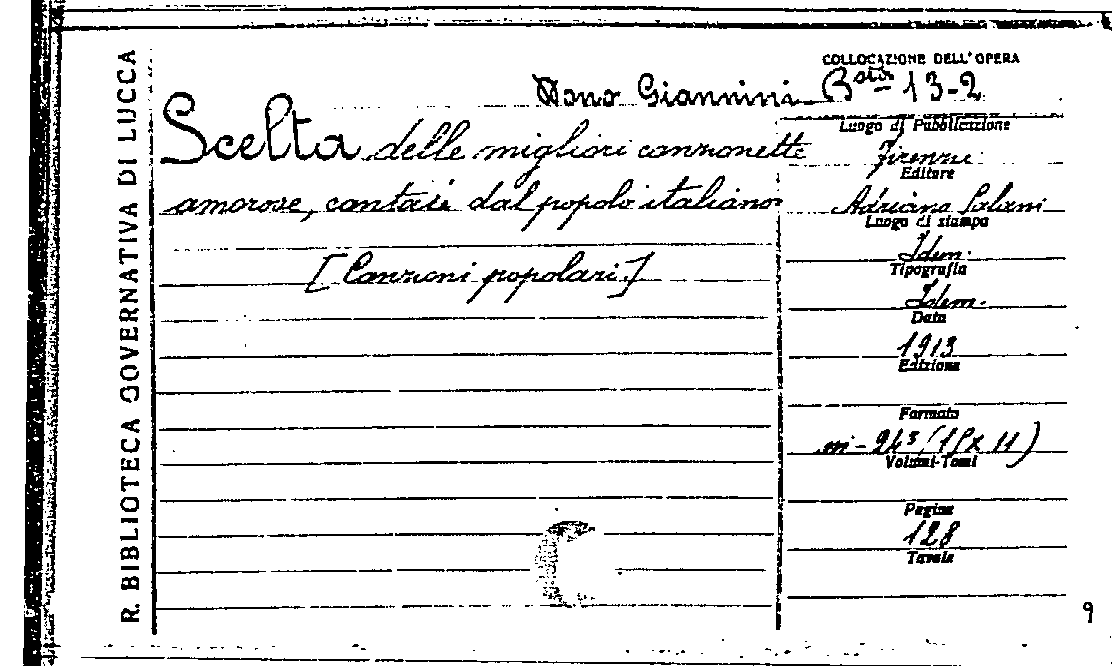 R. BIBLIOTECA GOVERNATIVA DI LUCCA
COLLOCAZIONE DELL'OPERA
Dono Giannini
13-2
Scelta delle migliori canzonette
amorose, cantate dal popolo italiano
[Canzoni popolari]
Luogo di Pubblicazione
Firenze
Editore
Adriano Salani
Luogo di stampa
Idem.
Tipografia
Idem.
Data
1913
Edizione
Formato
in-24° (15 x 11)
Volumi-Tomi
Pagine
128
Tavole
9